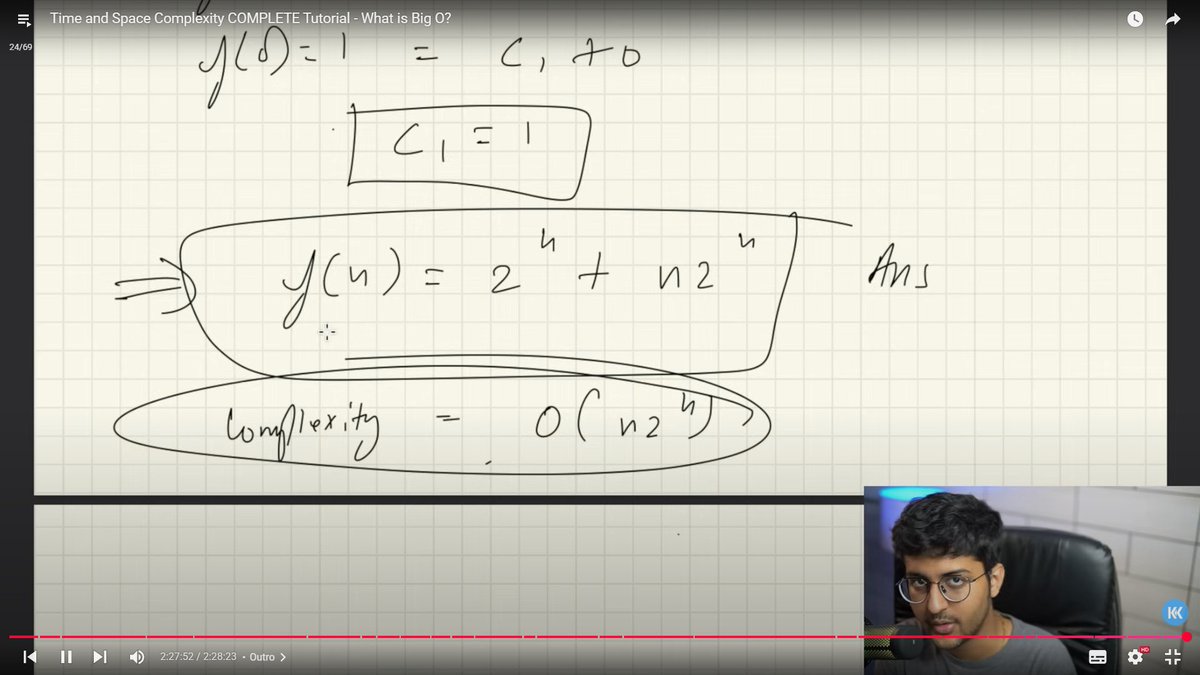 Time and Space Complexity COMPLETE Tutorial - What is Big O?
24/69
y(0) = 1 = C₁ + 0
C₁ = 1
⇒ y(n) = 2ⁿ + n2ⁿ Ans
Complexity = O(n2ⁿ)
2:27:52 / 2:28:23 • Outro >
HD